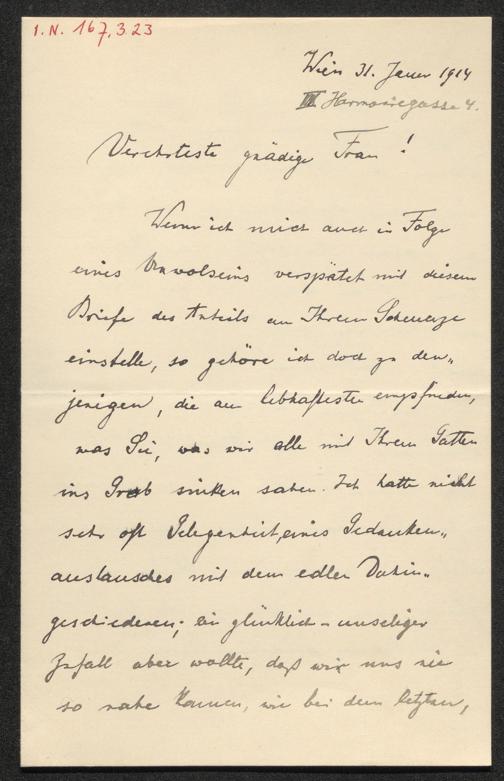 I.N. 167.323
Wien 31. Jänner 1914
III Harmoniegasse 4.
Verehrteste gnädige Frau!
Wenn ich mich auch in Folge
eines Unwolseins verspätet mit diesem
Briefe des Anteils an Ihrem Schmerze
einstelle, so gehöre ich doch zu den„
jenigen, die am lebhaftesten empfinden,
was Sie, was wir alle mit Ihrem Gatten
ins Grab sinken sahen. Ich hatte nicht
sehr oft Gelegenheit eines Gedanken„
austausches mit dem edlen Dahin„
geschiedenen; ein glücklich-unseliger
Zufall aber wollte, daß wir uns nie
so nahe kamen, wie bei dem letzten,